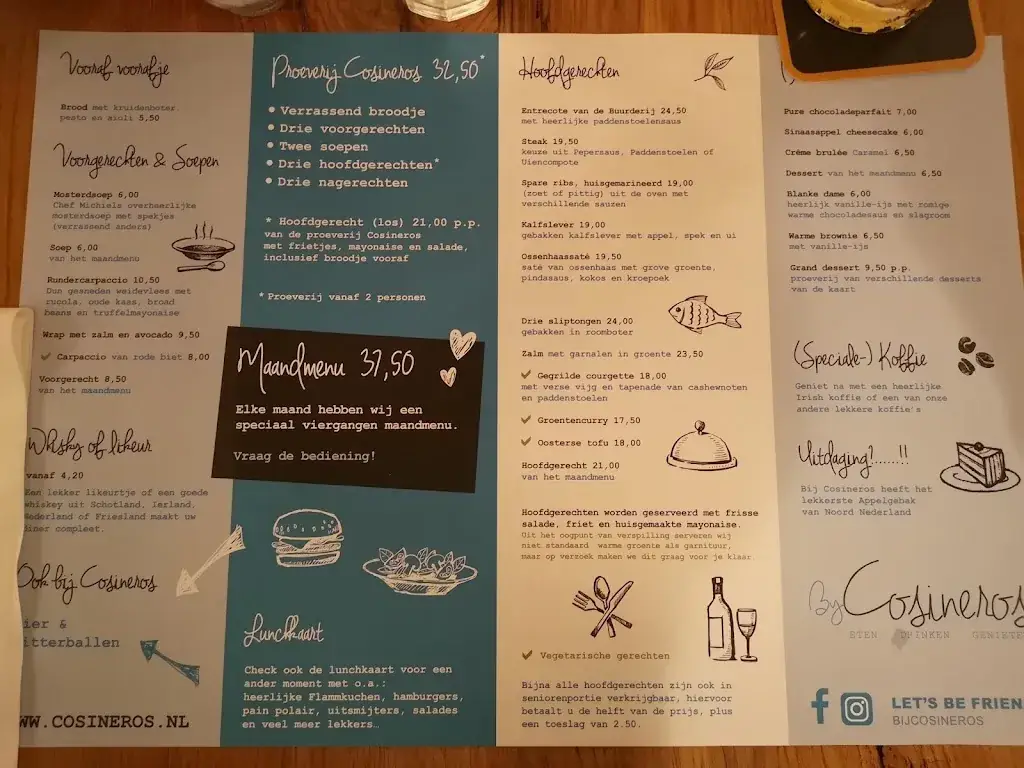 Vooraf voorafje
Brood met kruidenboter,
pesto en aioli 5,50
Voorgerechten & Soepen
Mosterdsoep 6,00
Chef Michiels overheerlijke
mosterdsoep met spekjes
(verrassend anders)
Soep 6,00
van het maandmenu
Rundercarpaccio 10,50
Dun gesneden weidevlees met
rucola, oude kaas, broad
beans en truffelmayonaise
Wrap met zalm en avocado 9,50
✓ Carpaccio van rode biet 8,00
Voorgerecht 8,50
van het maandmenu
Whisky of likeur
vanaf 4,20
Een lekker likeurtje of een goede
whiskey uit Schotland, Ierland,
Nederland of Friesland maakt uw
diner compleet.
Ook bij Cosineros
ier &
itterballen
WW.COSINEROS.NL
Proeverij Cosineros 32,50*
• Verrassend broodje
• Drie voorgerechten
• Twee soepen
• Drie hoofdgerechten*
• Drie nagerechten
* Hoofdgerecht (los) 21,00 p.p.
van de proeverij Cosineros
met frietjes, mayonaise en salade,
inclusief broodje vooraf
*Proeverij vanaf 2 personen
Maandmenu 37,50
Elke maand hebben wij een
speciaal viergangen maandmenu.
Vraag de bediening!
Lunchkaart
Check ook de lunchkaart voor een
ander moment met o.a.:
heerlijke Flammkuchen, hamburgers,
pain polair, uitsmijters, salades
en veel meer lekkers…
Hoofdgerechten
Entrecote van de Buurderij 24,50
met heerlijke paddenstoelensaus
Steak 19,50
keuze uit Pepersaus, Paddenstoelen of
Uiencompote
Spare ribs, huisgemarineerd 19,00
(zoet of pittig) uit de oven met
verschillende sauzen
Kalfslever 19,00
gebakken kalfslever met appel, spek en ui
Ossenhaassaté 19,50
saté van ossenhaas met grove groente,
pindasaus, kokos en kroepoek
Drie sliptongen 24,00
gebakken in roomboter
Zalm met garnalen in groente 23,50
✓ Gegrilde courgette 18,00
met verse vijg en tapenade van cashewnoten
en paddenstoelen
✓ Groentencurry 17,50
✓ Oosterse tofu 18,00
Hoofdgerecht 21,00
van het maandmenu
Hoofdgerechten worden geserveerd met frisse
salade, friet en huisgemaakte mayonaise.
Uit het oogpunt van verspilling serveren wij
niet standaard warme groente als garnituur,
maar op verzoek maken we dit graag voor je klaar.
✓ Vegetarische gerechten
Bijna alle hoofdgerechten zijn ook in
seniorenportie verkrijgbaar, hiervoor
betaalt u de helft van de prijs, plus
een toeslag van 2.50.
Pure chocoladeparfait 7,00
Sinaasappel cheesecake 6,00
Créme brulée Caramel 6,50
Dessert van het maandmenu 6,50
Blanke dame 6,00
heerlijk vanille-ijs met romige
warme chocoladesaus en slagroom
Warme brownie 6,50
met vanille-ijs
Grand dessert 9,50 p.p.
proeverij van verschillende desserts
van de kaart
(Speciale-) Koffie
Geniet na met een heerlijke
Irish koffie of een van onze
andere lekkere koffie's
Uitdaging?.......!!
Bij Cosineros heeft het
lekkerste Appelgebak
van Noord Nederland
By Cosineros
ETEN DRINKEN GENIETE
LET'S BE FRIEN
BIJCOSINEROS